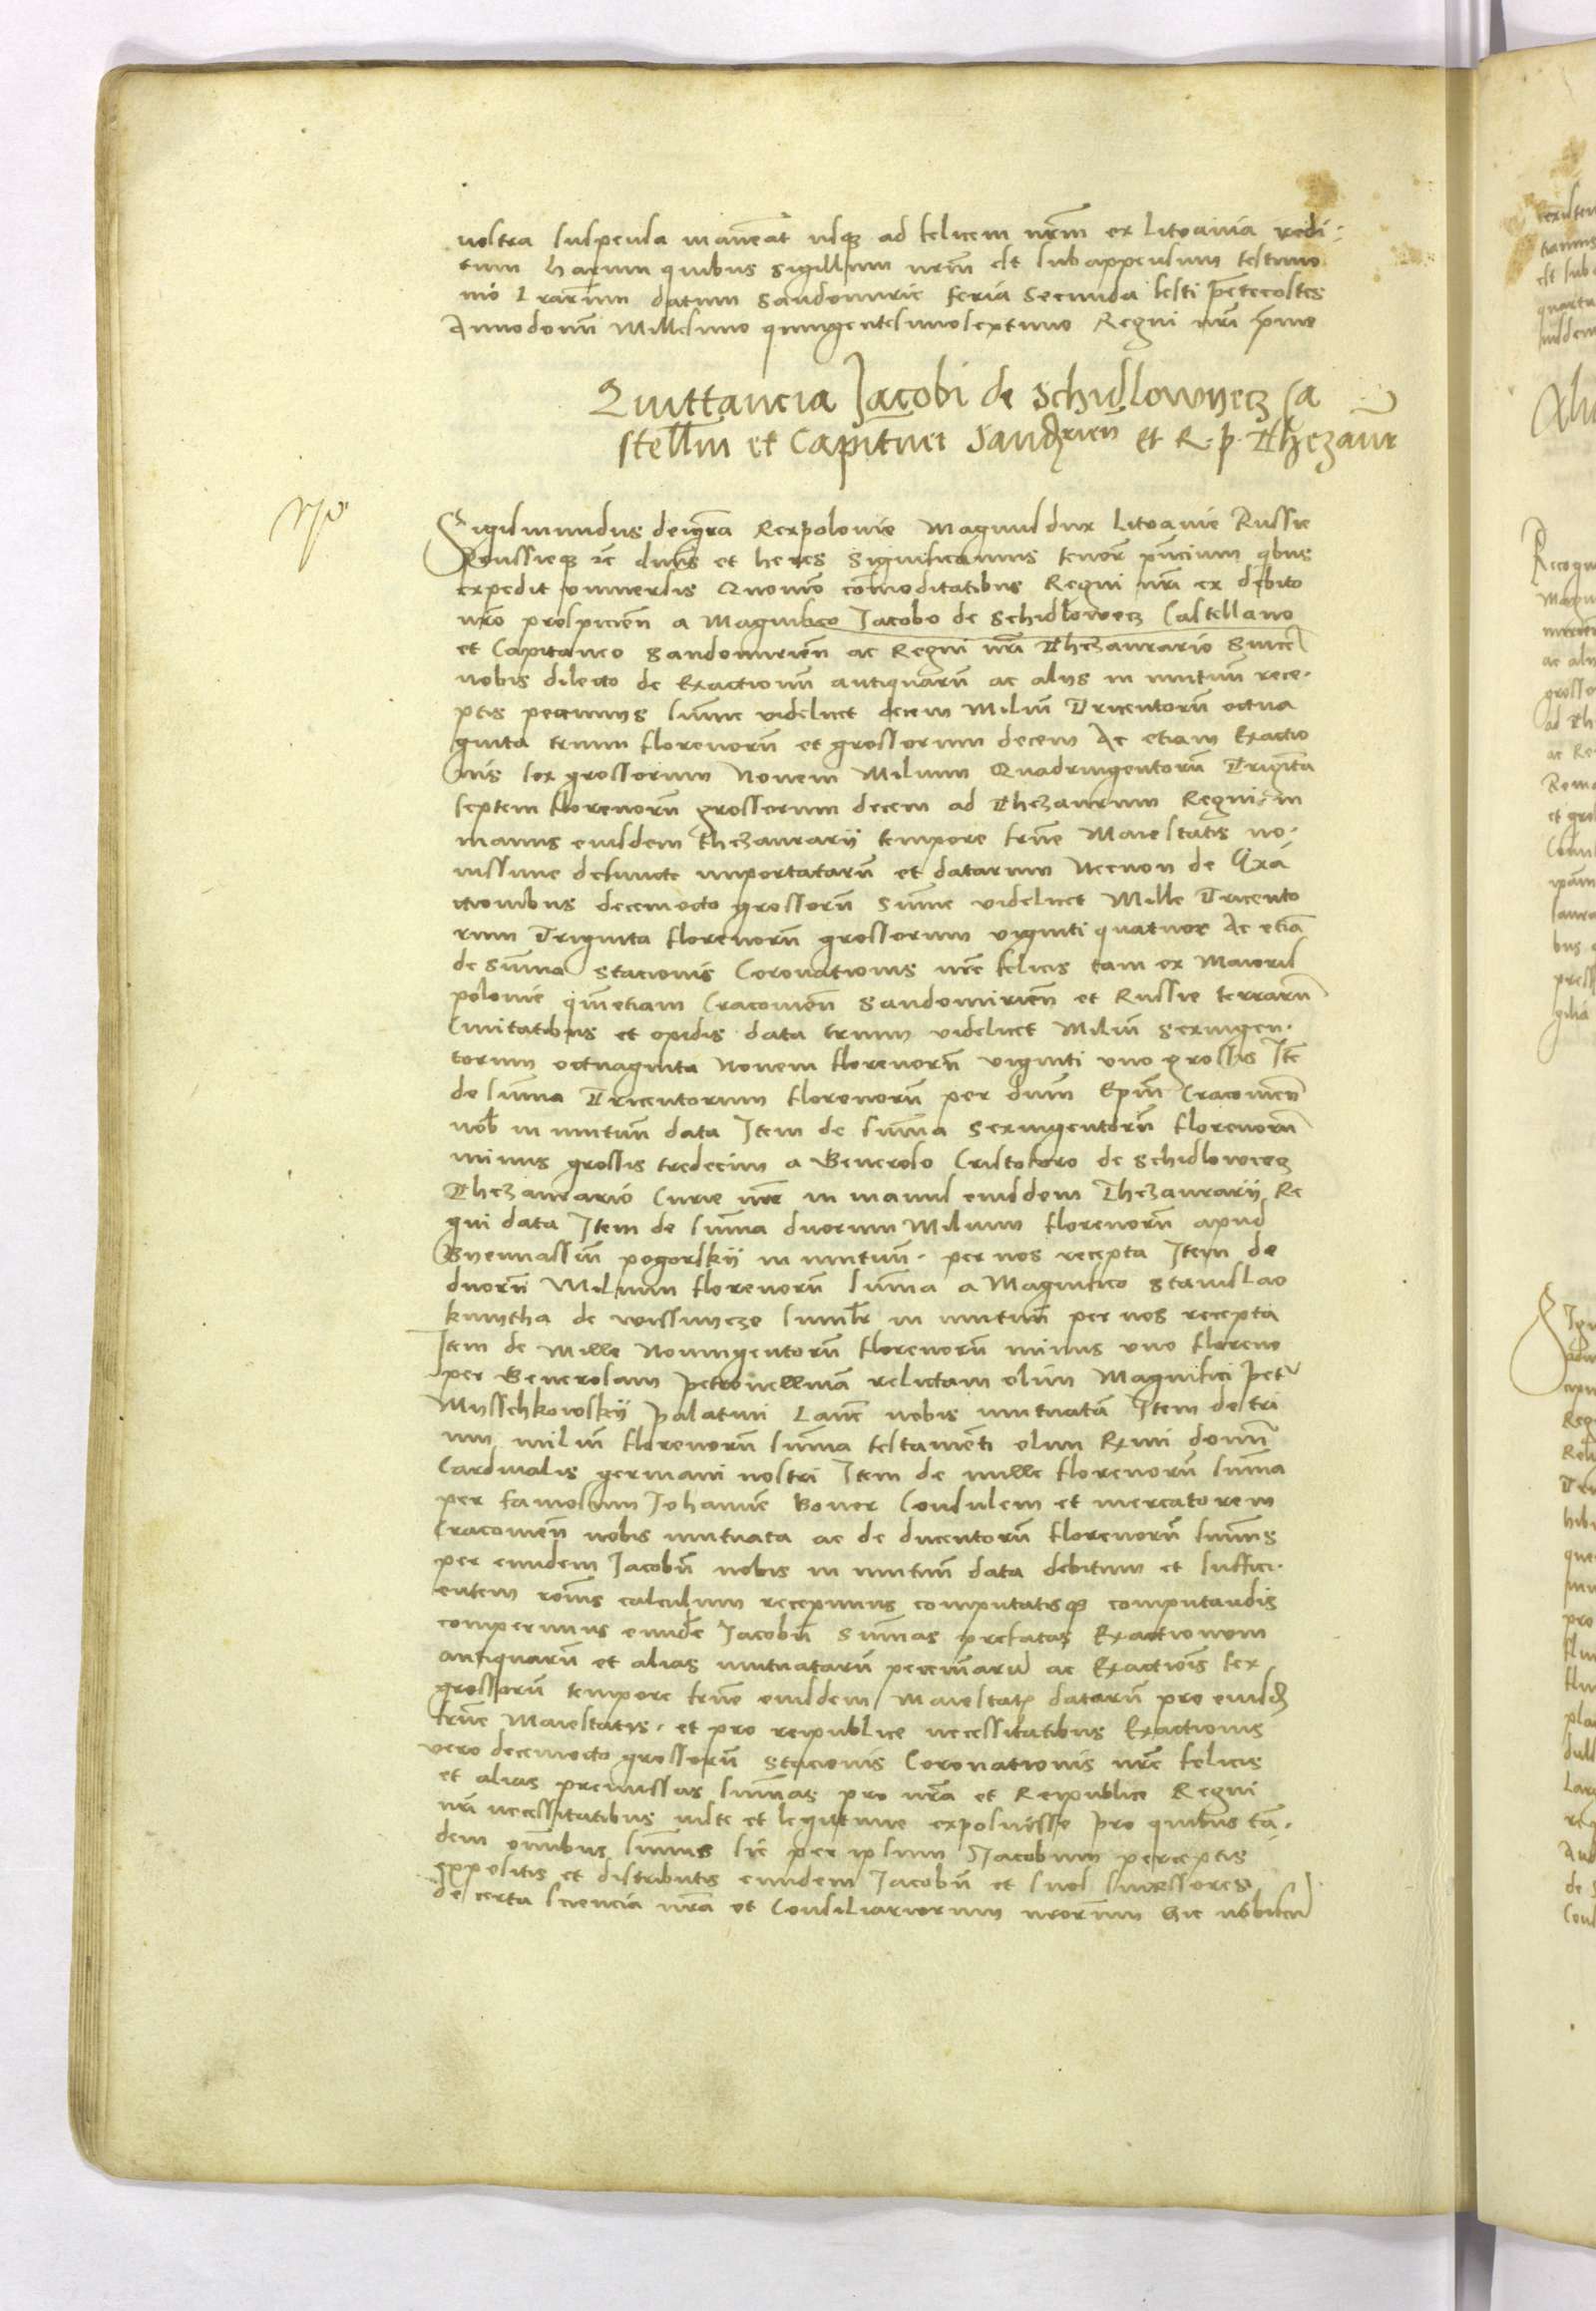 nostra suspensa maneat usq ad felicem nrm ex Litoania redi:
tum harum quibus sigillum nrm est subappensum testimo
nio Lrarum datum Sandomirie feria Secunda festi pentecostes
Anno domi Millesimo quingentesimo septimo Regni nri primo
Quittancia Jacobi de Schidlowyecz Ca
stellani et Capitanei Sandrien et R. p. Thezaur
Sigismundus dei gra Rex polonie Magnus dux Litoanie Russie
Prussieq zc dnus et heres Significamus tenore pncium qbus
expedit universis Quomo commoditatibus Regni nri ex debito
nro prospicien a Magnifico Jacobo de Schidlowecz Castellano
et Capitaneo Sandomirien ac Regni nri Thezaurario Sincere
nobis dilecto de Exactionum antiquarum ac alijs in mutuum rece-
ptis pecunijs summe videlicet decem Milium Tricentorum octua
ginta trium florenorum et grossorum decem Ac etiam Exactio
nis sex grossorum Novem Milium Quadringentorum Triginta
septem florenorum grossorum decem ad Thezaurum Regni in
manus eiusdem thezaurarij tempore frne Maiestatis no-
vissime defuncte importatarum et datarum Necnon de Exa
ctionibus decemocto grossorum Summe videlicet Mille Tricento
rum Triginta florenorum grossorum viginti quatuor Ac etia
de Summa Stacionis Coronationis nre felicis tam ex Maioris
polonie qm etiam Cracovien Sandomirien et Russie terrarum
Civitatibus et opidis data trium videlicet Milium Sexingen-
torum octuaginta Novem florenorum viginti uno grossis Ite
de summa Tricentorum florenorum per dnm Epm Cracovien
nob in mutuum data Item de summa Sexingentorum florenorum
minus grossis tredecim a Generoso Cristoforo de Schidlowecz
Thezaurario Curie nre in manus eiusdem Thezaurarij Re
gni data Item de summa duorum Milium florenorum apud
Gyemassium pogorskij in mutuum per nos recepta Item de
duorum Milium florenorum summa a Magnifico Stanislao
kmytha de wissnycze similr in mutuum per nos recepta
Item de Mille Noningentorum florenorum minus uno floreno
per Generosam petronellam relictam olim Magnifici petri
Mysschkowskij palatini Lanc nobis mutuata Item de tri
um milium florenorum summa testamenti olim Rxmi domi
Cardinalis germani nostri Item de mille florenorum summa
per famosum Johannem Boner Consulem et mercatorem
Cracovien nobis mutuata ac de ducentorum florenorum summis
per eundem Jacobum nobis in mutuum data debitum et suffici-
entem ronis calculum recepimus computatisq computandis
comperimus eunde Jacobum Summas prefatas Exactionum
antiquarum et alias mutuatarum pecuniarum ac Exactionis sex
grossorum tempore frne eiusdem Maiestatis datarum pro eiusd
frne Maiestatis et pro reipublice necessitatibus Exactionis
vero decemocto grossorum Stacionis Coronationis nre felicis
et alias premissas summas pro nra et Reipublice Regni
nri necessitatibus iuste et legitime exposuisse pro quibus tan-
dem omnibus summis sic per ipsum Jacobum perceptis
expositis et distributis eundem Jacobum et suos successores
de certa sciencia nra et Consiliariorum nrorum hic nobiscum